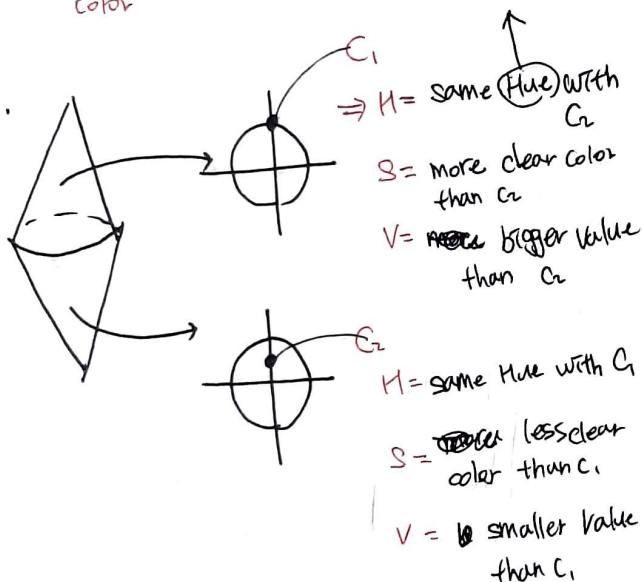 color
C₁
⇒ H = same Hue with
C₂
S = more clear color
than C₂
V = bigger value
than C₂
C₂
H = same Hue with C₁
S = less clear
color than C₁
V = smaller value
than C₁